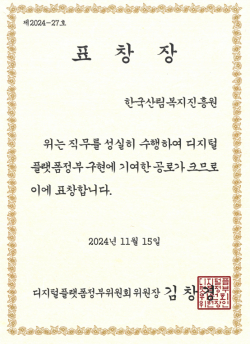 제2024-27호
표 창 장
한국산림복지진흥원
위는 직무를 성실히 수행하여 디지털
플랫폼정부 구현에 기여한 공로가 크므로
이에 표창합니다.
2024년 11월 15일
디지털플랫폼정부위원회위원장 김 창 경